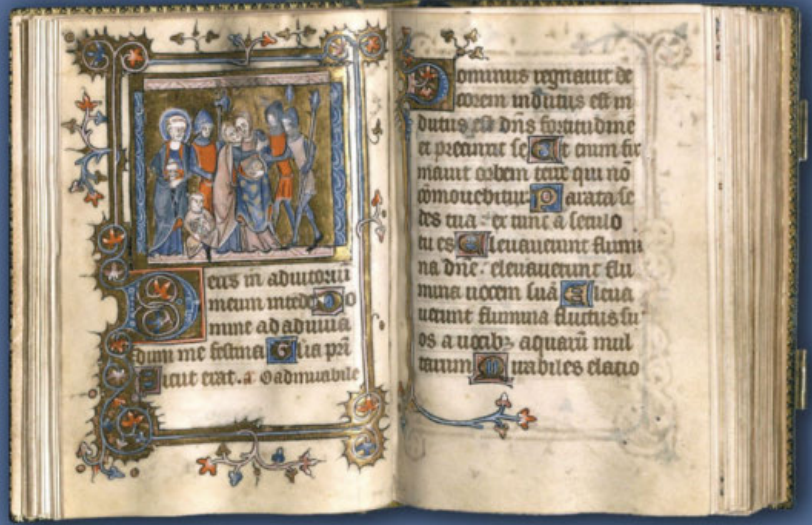 Deus in adiutoriū
meum intende Do
mine ad adiuua
dum me festina Glia pri
Sicut erat. a O admirabile
Dominus regnauit de
corem indutus est in
dutus est dn̄s fortitudine
et precinxit se Et enim fir
mauit orbem terre qui nō
cōmouebitur. Parata se
des tua ex tunc a seculo
tu es Eleuauerunt flumi
na dn̄e. eleuauerunt flu
mina uocem suā Aleua
uerunt flumina fluctus su
os a uocibꝫ aquarū mul
tarum Mirabiles elatio